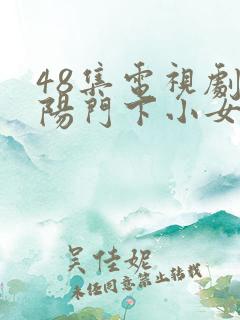 48集電視劇
陽門下小女
吴佳妮
未经同意禁止转载